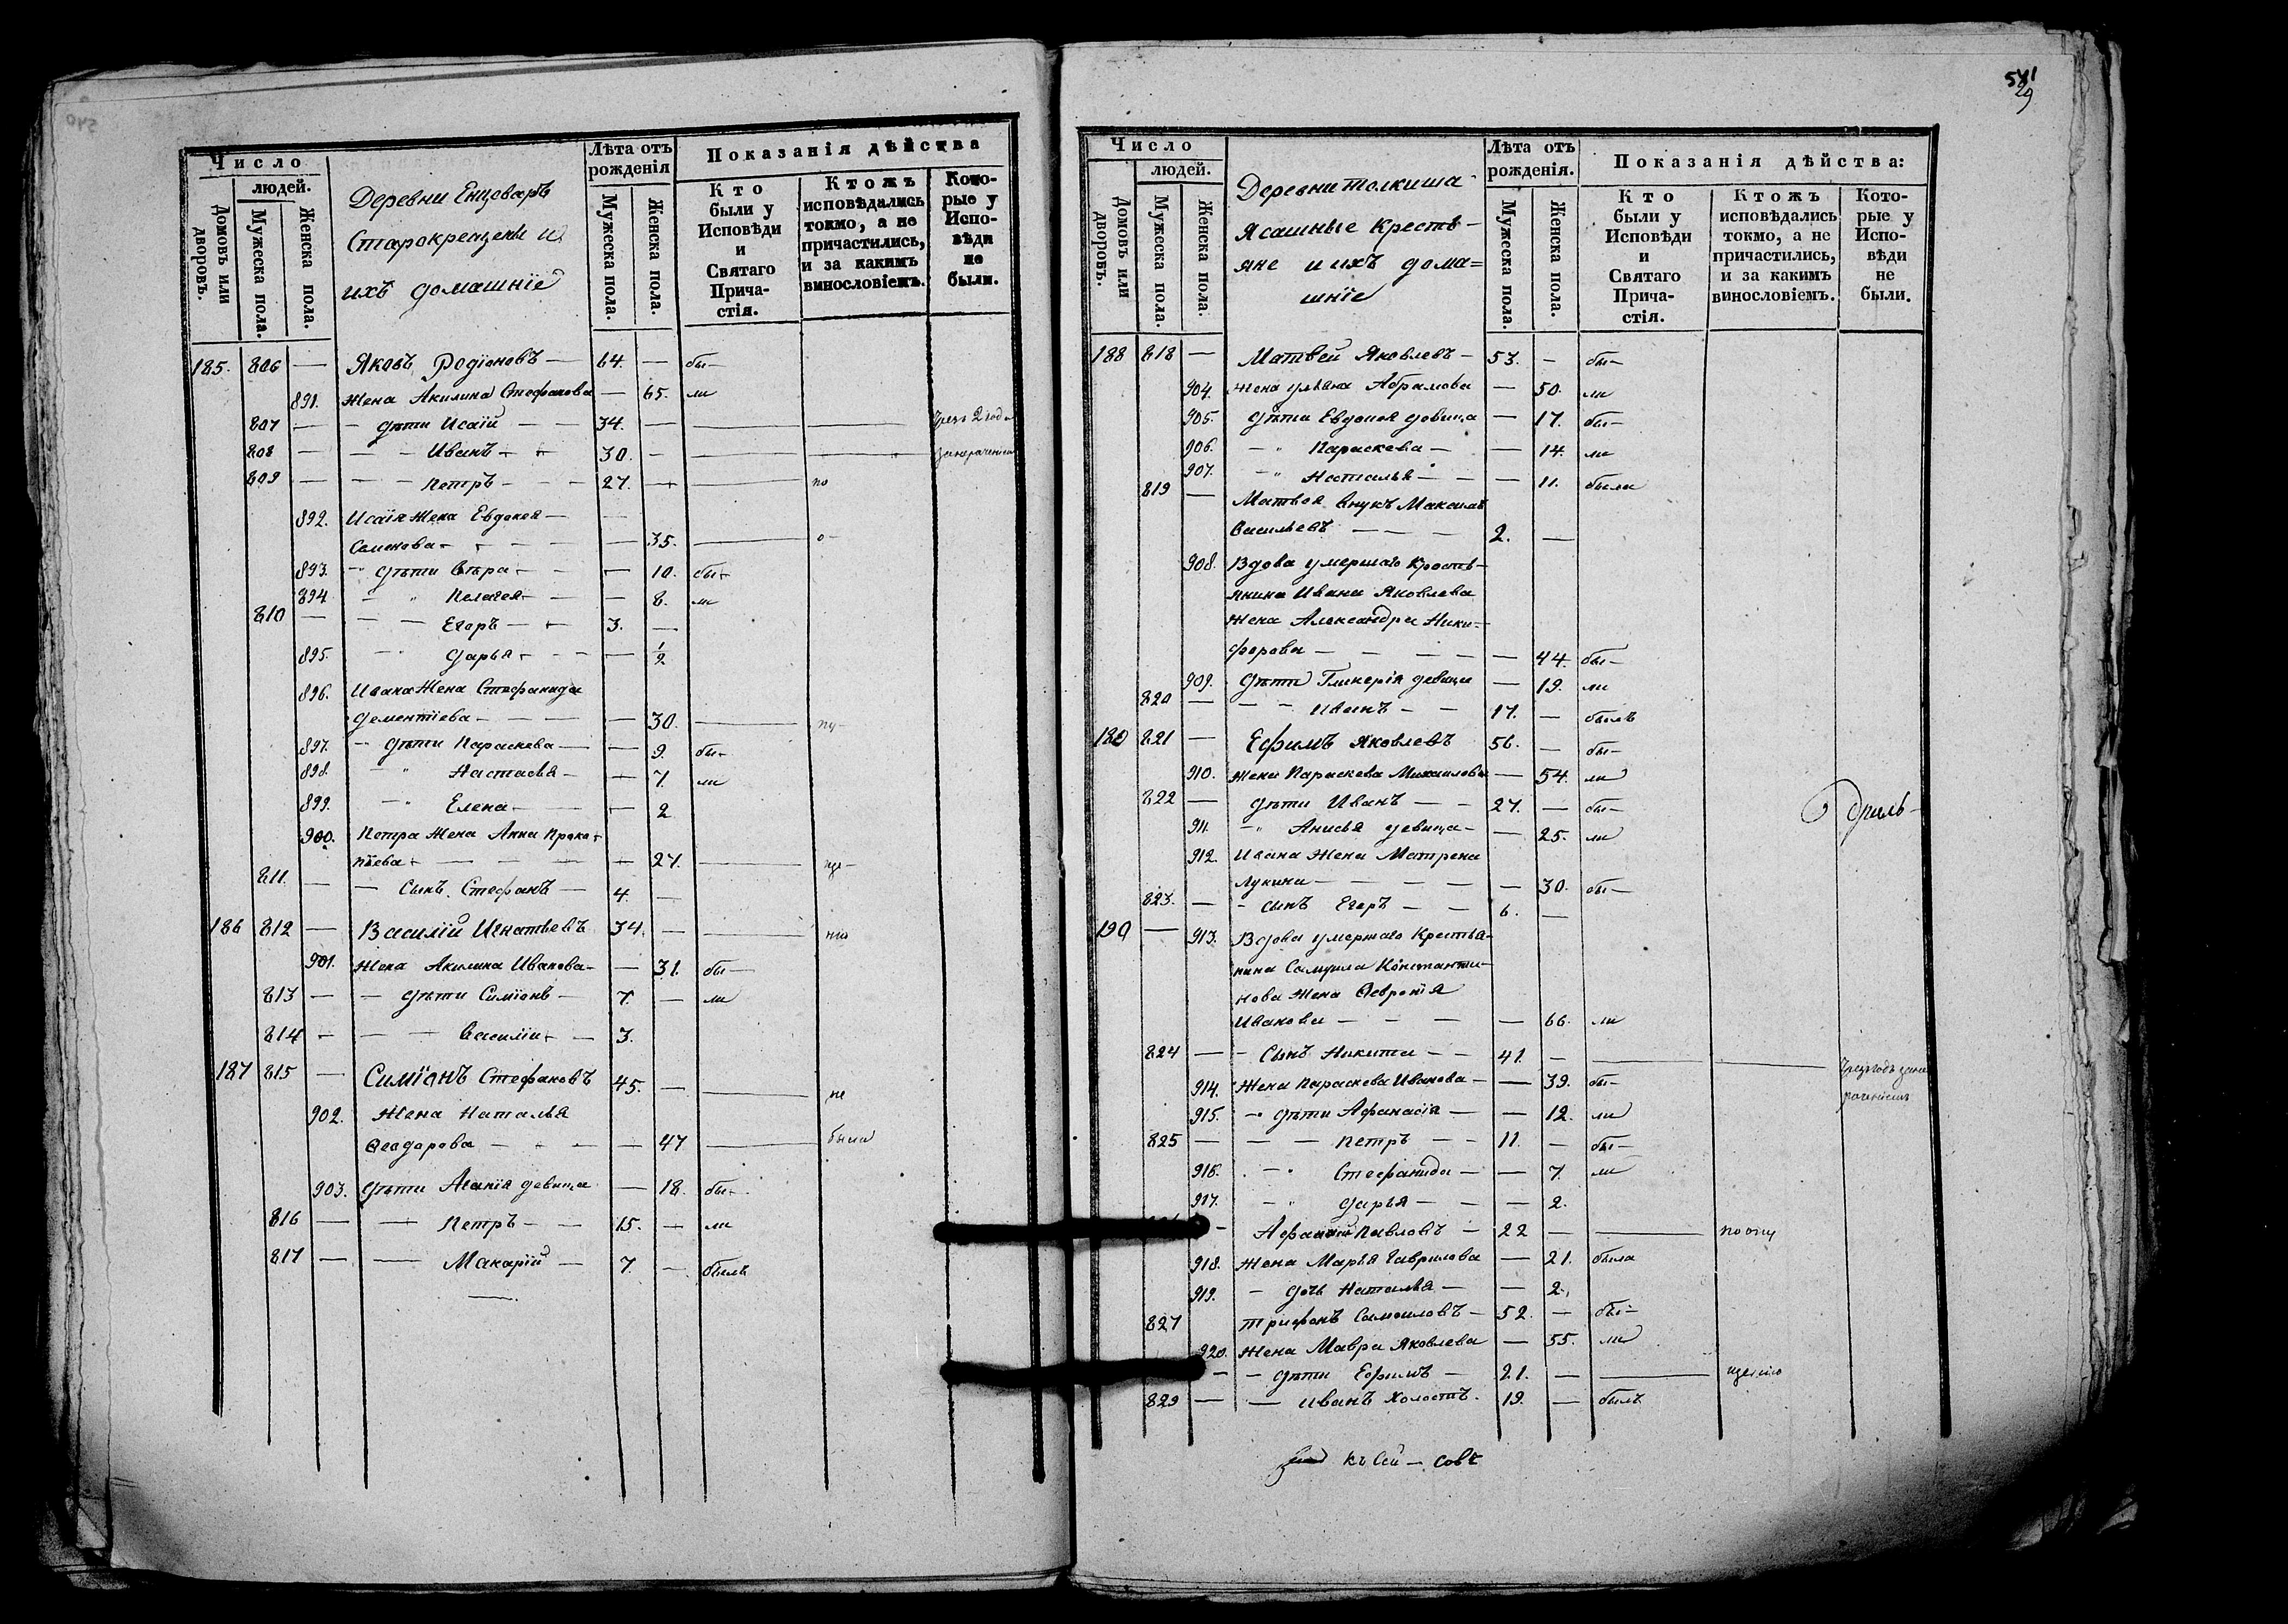 Число
людей.
Домовъ или дворовъ.
Мужеска пола.
Женска пола.
Деревни Енцоваръ
Старокрещены и
ихъ домашніе
Лѣта отъ рожденія
Мужеска пола.
Женска пола.
Показанія дѣйства
Кто были у Исповѣди и Святаго Прича-стія.
Ктожъ исповѣдались токмо, а не причастились, и за какимъ винословіемъ.
Кото-рые у Испо-вѣди не были.
185. 806 — Яковъ Родіоновъ — 64. — бы—
891. Жена Акилина Стефанова — 65. ли
807 — — дѣти Исаій — — 34. — чрезъ 2 года
808 — — — Иванъ — — 30. —
809 — — — Петръ — — 27. — по
892. Исаія Жена Евдокея —
Семенова — — — — 35. о—
893. — дѣти Вѣра — — — 10. бы—
894. — " Пелагея — — — 8. ли
810 — — — Егоръ — — 3. —
895. — Дарья — — — — 1/2
896. Ивана Жена Стефанида
Дементіева — — — — 30. пу—
897. — дѣти Параскева — — 9. бы—
898. — " Настасья — — 7. ли
899. — " Елена — — — 2
900. Петра Жена Анна Прако-
пьева — — — — — 27. ще—
811. — — Сынъ Стефанъ — 4. —
186 812 — Василій Игнатьевъ 34. — нію
901. Жена Акилина Иванова — — 31. бы—
813 — — дѣти Симіонъ — 7. — ли
814 — — — Василій — — 3.
187 815 — Симіонъ Стефановъ 45. — не
902. Жена Наталья
Ѳеодорова — — — — 47 была
903. дѣти Агапія девица — 18. бы—
816 — — Петръ — — 15. — ли
817 — — Макарій — 7. — былъ
541
29
Число
людей.
Домовъ или дворовъ.
Мужеска пола.
Женска пола.
Деревни толкиша
ясашные кресть-
яне и ихъ дома=
шніе
Лѣта отъ рожденія.
Мужеска пола.
Женска пола.
Показанія дѣйства:
Кто были у Исповѣди и Святаго Прича-стія.
Ктожъ исповѣдались токмо, а не причастились, и за какимъ винословіемъ.
Кото-рые у Испо-вѣди не были.
188 818 — Матвей Яковлевъ — 53. — бы—
904. Жена ульяна Абрамова — 50. ли
905. дѣти Евдокея девица — 17. бы—
906. — " Параскева — — 14. ли
907. — " Наталья — — — 11. были
819 — Матвея внукъ Максимъ
Васильевъ — — — 2. —
908. Вдова умершаго кресть-
янина Ивана Яковлева
жена Александра Ники-
форова — — — — — 44. бы—
909. Дѣти Гликерія девица — 19. ли
820 — — — Иванъ — — 17. — былъ
189 821 — Ефимъ Яковлевъ 56. — бы—
910. Жена Параскева Михаилова — 54. ли
822 — дѣти Иванъ — — 27. — бы—
911. — " Анисья девица — — 25. ли
912. Ивана Жена Матрена
Лукина — — — — — 30. бы—
823. — — сынъ Егоръ — — 6. —
190 — 913. Вдова умершаго Крестья-
нина Самуила Константи-
нова Жена Ѳевронія
Иванова — — — — 66. ли
824 — — Сынъ Никита — — 41. —
914. Жена Параскева Иванова — — 39. бы—
915. — дѣти Афанасія — — 12. ли
825 — — — Петръ — — 11. — бы—
916. — " Стефанида — — 7. ли
917. — " Дарья — — — 2.
— Афанасій Павловъ — 22 — по опу
918. Жена Марья Гаврилова — 21. была
919. — дочь Наталья — — 2.
827 Трифонъ Самоиловъ — 52. — бы—
920. Жена Мавра Яковлева — 55. ли
— — дѣти Ефимъ — 21. — щенію
829 — — Иванъ холостъ. 19. — былъ
къ сей — совѣ